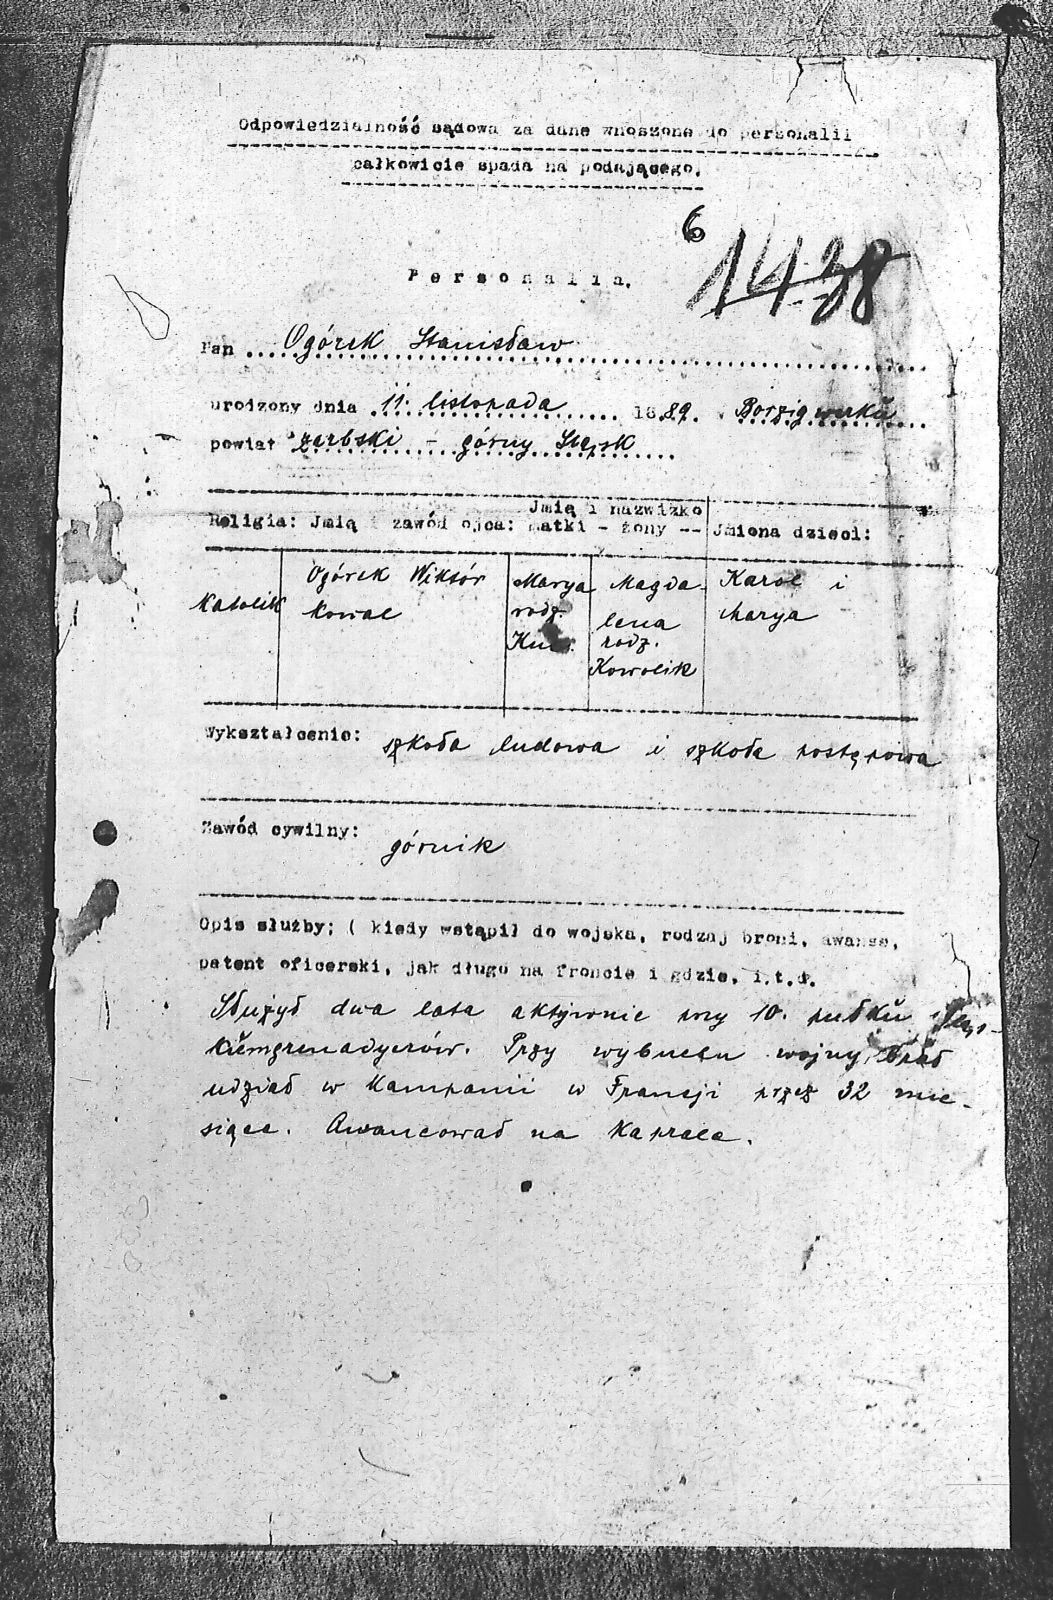 Odpowiedzialność sądowa za dane wnoszone do personalii
całkowicie spada na podającego.
6
1438
Personalia.
Pan Ogórek Stanisław
urodzony dnia 11. listopada 1889. w Borzigwerku
powiat zarbski - górny Sląsk
Religia: Jmię i zawód ojca: Jmię i nazwizko matki - żony -- Jmiona dzieci:
Katolik
Ogórek Wiktór
Kowal
Marya
rodz.
Magda-
lena
rodz.
Kowolik
Karol i
Marya
Wykształcenie: szkoła ludowa i szkoła postępowa
Zawód cywilny: górnik
Opis służby; ( kiedy wstąpił do wojska, rodzaj broni, awanse,
patent oficerski, jak długo na froncie i gdzie, i.t.d.
Służył dwa lata aktywnie przy 10. pułku
Przy wybuchu wojny brał
udział w Kampanii w Francji przez 32 mie-
siące. Awancował na Kaprala.